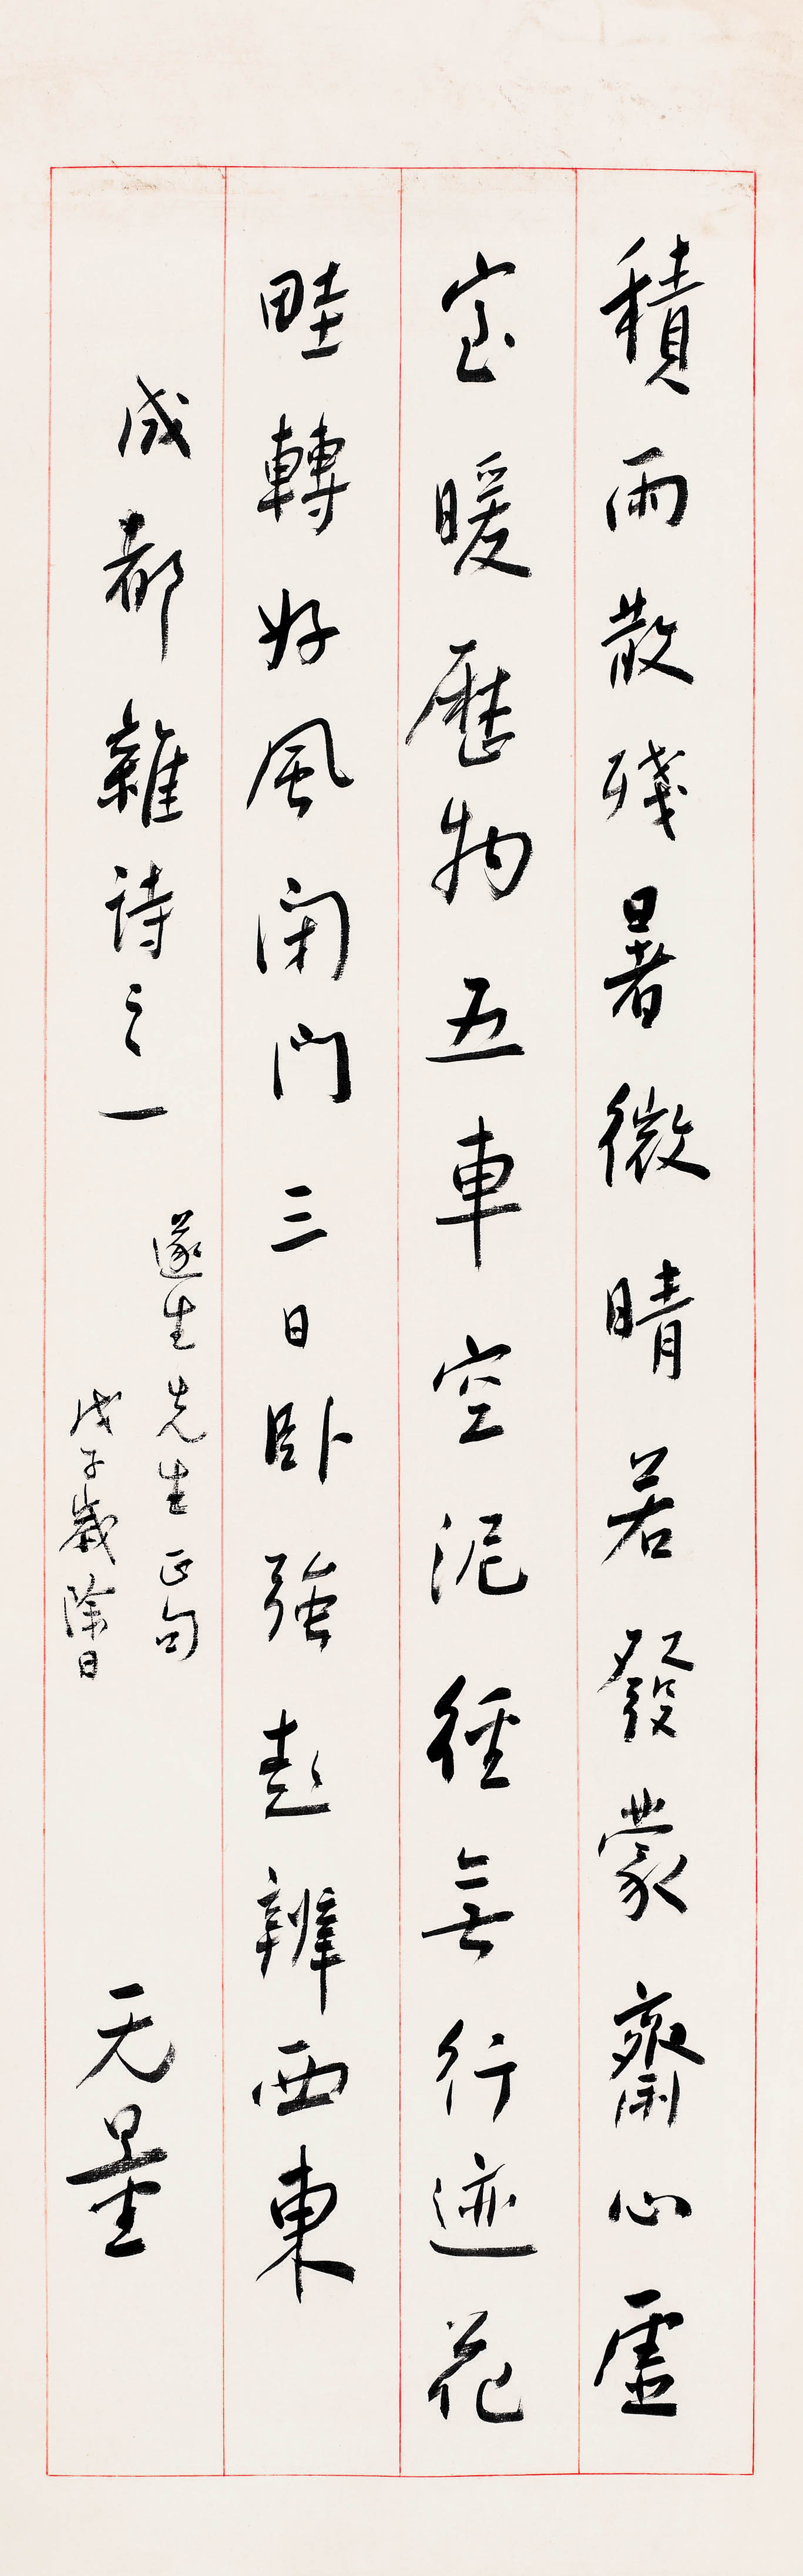 積雨散殘暑微晴若發蒙齋心虛
室暖歷物五車空泥徑無行迹花
畦轉好風閉門三日卧強起辨西東
成都雜詩之一
遂生先生正句
戊子歲除日
无量